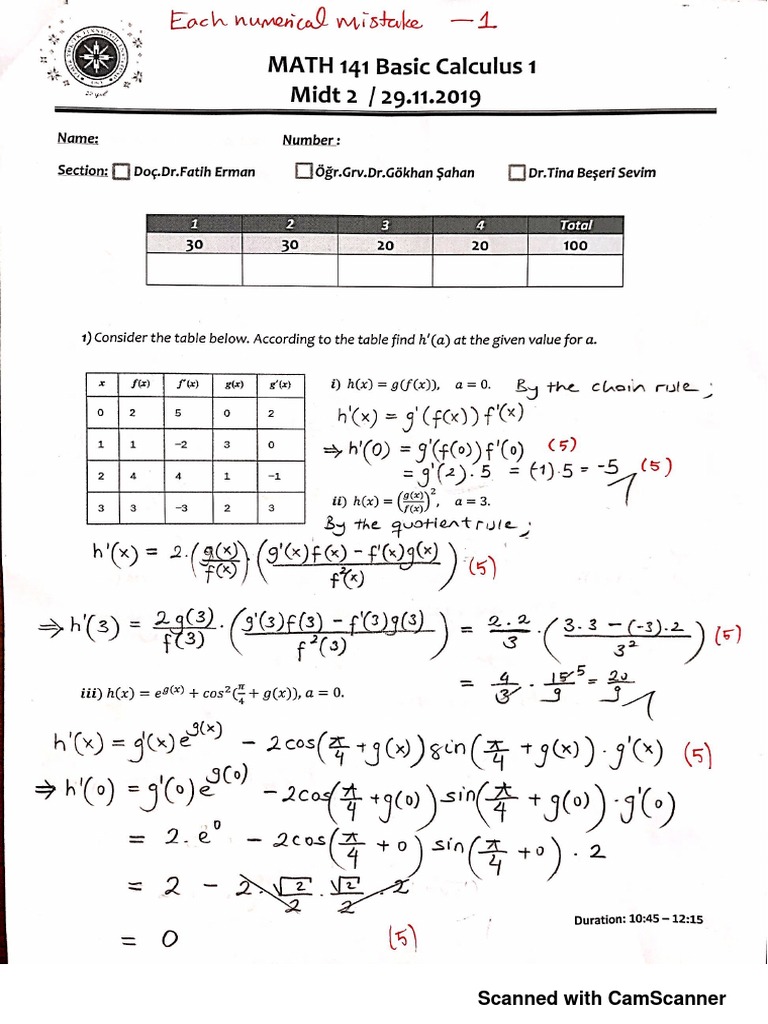 Each numerical mistake —1
MATH 141 Basic Calculus 1
Midt 2 / 29.11.2019
Name: Number:
Section: Doç.Dr.Fatih Erman Öğr.Grv.Dr.Gökhan Şahan Dr.Tina Beşeri Sevim
1 2 3 4 Total
30 30 20 20 100
1) Consider the table below. According to the table find h'(a) at the given value for a.
x f(x) f'(x) g(x) g'(x)
0 2 5 0 2
1 1 -2 3 0
2 4 4 1 -1
3 3 -3 2 3
i) h(x) = g(f(x)), a = 0. By the chain rule;
h'(x) = g'(f(x)) f'(x)
⇒ h'(0) = g'(f(0)) f'(0) (5)
= g'(2) · 5 = (-1) · 5 = -5 (5)
ii) h(x) = (g(x)/f(x))², a = 3.
By the quotient rule;
h'(x) = 2 · (g(x)/f(x)) · (g'(x)f(x) - f'(x)g(x) / f²(x)) (5)
⇒ h'(3) = 2g(3)/f(3) · (g'(3)f(3) - f'(3)g(3) / f²(3)) = 2.2/3 · (3.3 - (-3).2 / 3²) (5)
= 4/3 · 15/9 5 = 20/9
iii) h(x) = e^g(x) + cos²(π/4 + g(x)), a = 0.
h'(x) = g'(x) e^g(x) - 2cos(π/4 + g(x)) sin(π/4 + g(x)) · g'(x) (5)
⇒ h'(0) = g'(0) e^g(0) - 2cos(π/4 + g(0)) sin(π/4 + g(0)) · g'(0)
= 2. e⁰ - 2cos(π/4 + 0) sin(π/4 + 0) · 2
= 2 - 2 · √2/2 · √2/2 · 2
= 0 (5)
Duration: 10:45 – 12:15
Scanned with CamScanner